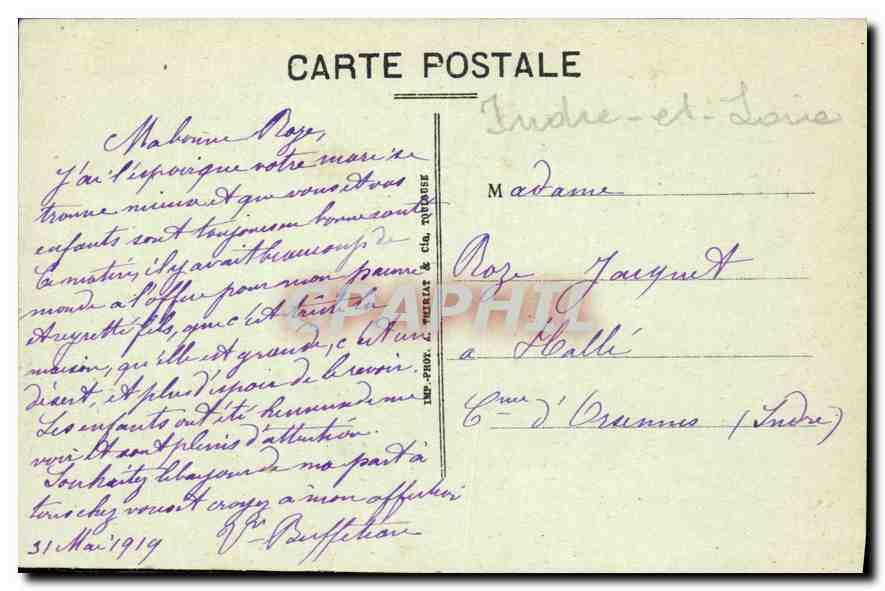 CARTE POSTALE
Indre-et-Loire
Ma bonne Roze,
J'ai l'espoir que votre mari se
trouve mieux et que vous et vos
enfants sont toujours en bonne santé
Ce matin, il y avait beaucoup de
monde à l'office pour mon pauvre
et regretté fils, que c'est triste la
maison, qu'elle est grande, c'est un
désert, et plus d'espoir de le revoir.
Les enfants ont été heureux de me
voir et sont pleins d'attention.
Souhaitez le bonjour de ma part à
tous chez vous et croyez à mon affection
31 Mai 1919
Vve
IMP.-PHOT. A. THIRIAT & Cie, TOULOUSE
Madame
Roze Jacquet
a Hallé
Cme d'Orsennes (Indre)
CPAPHIL